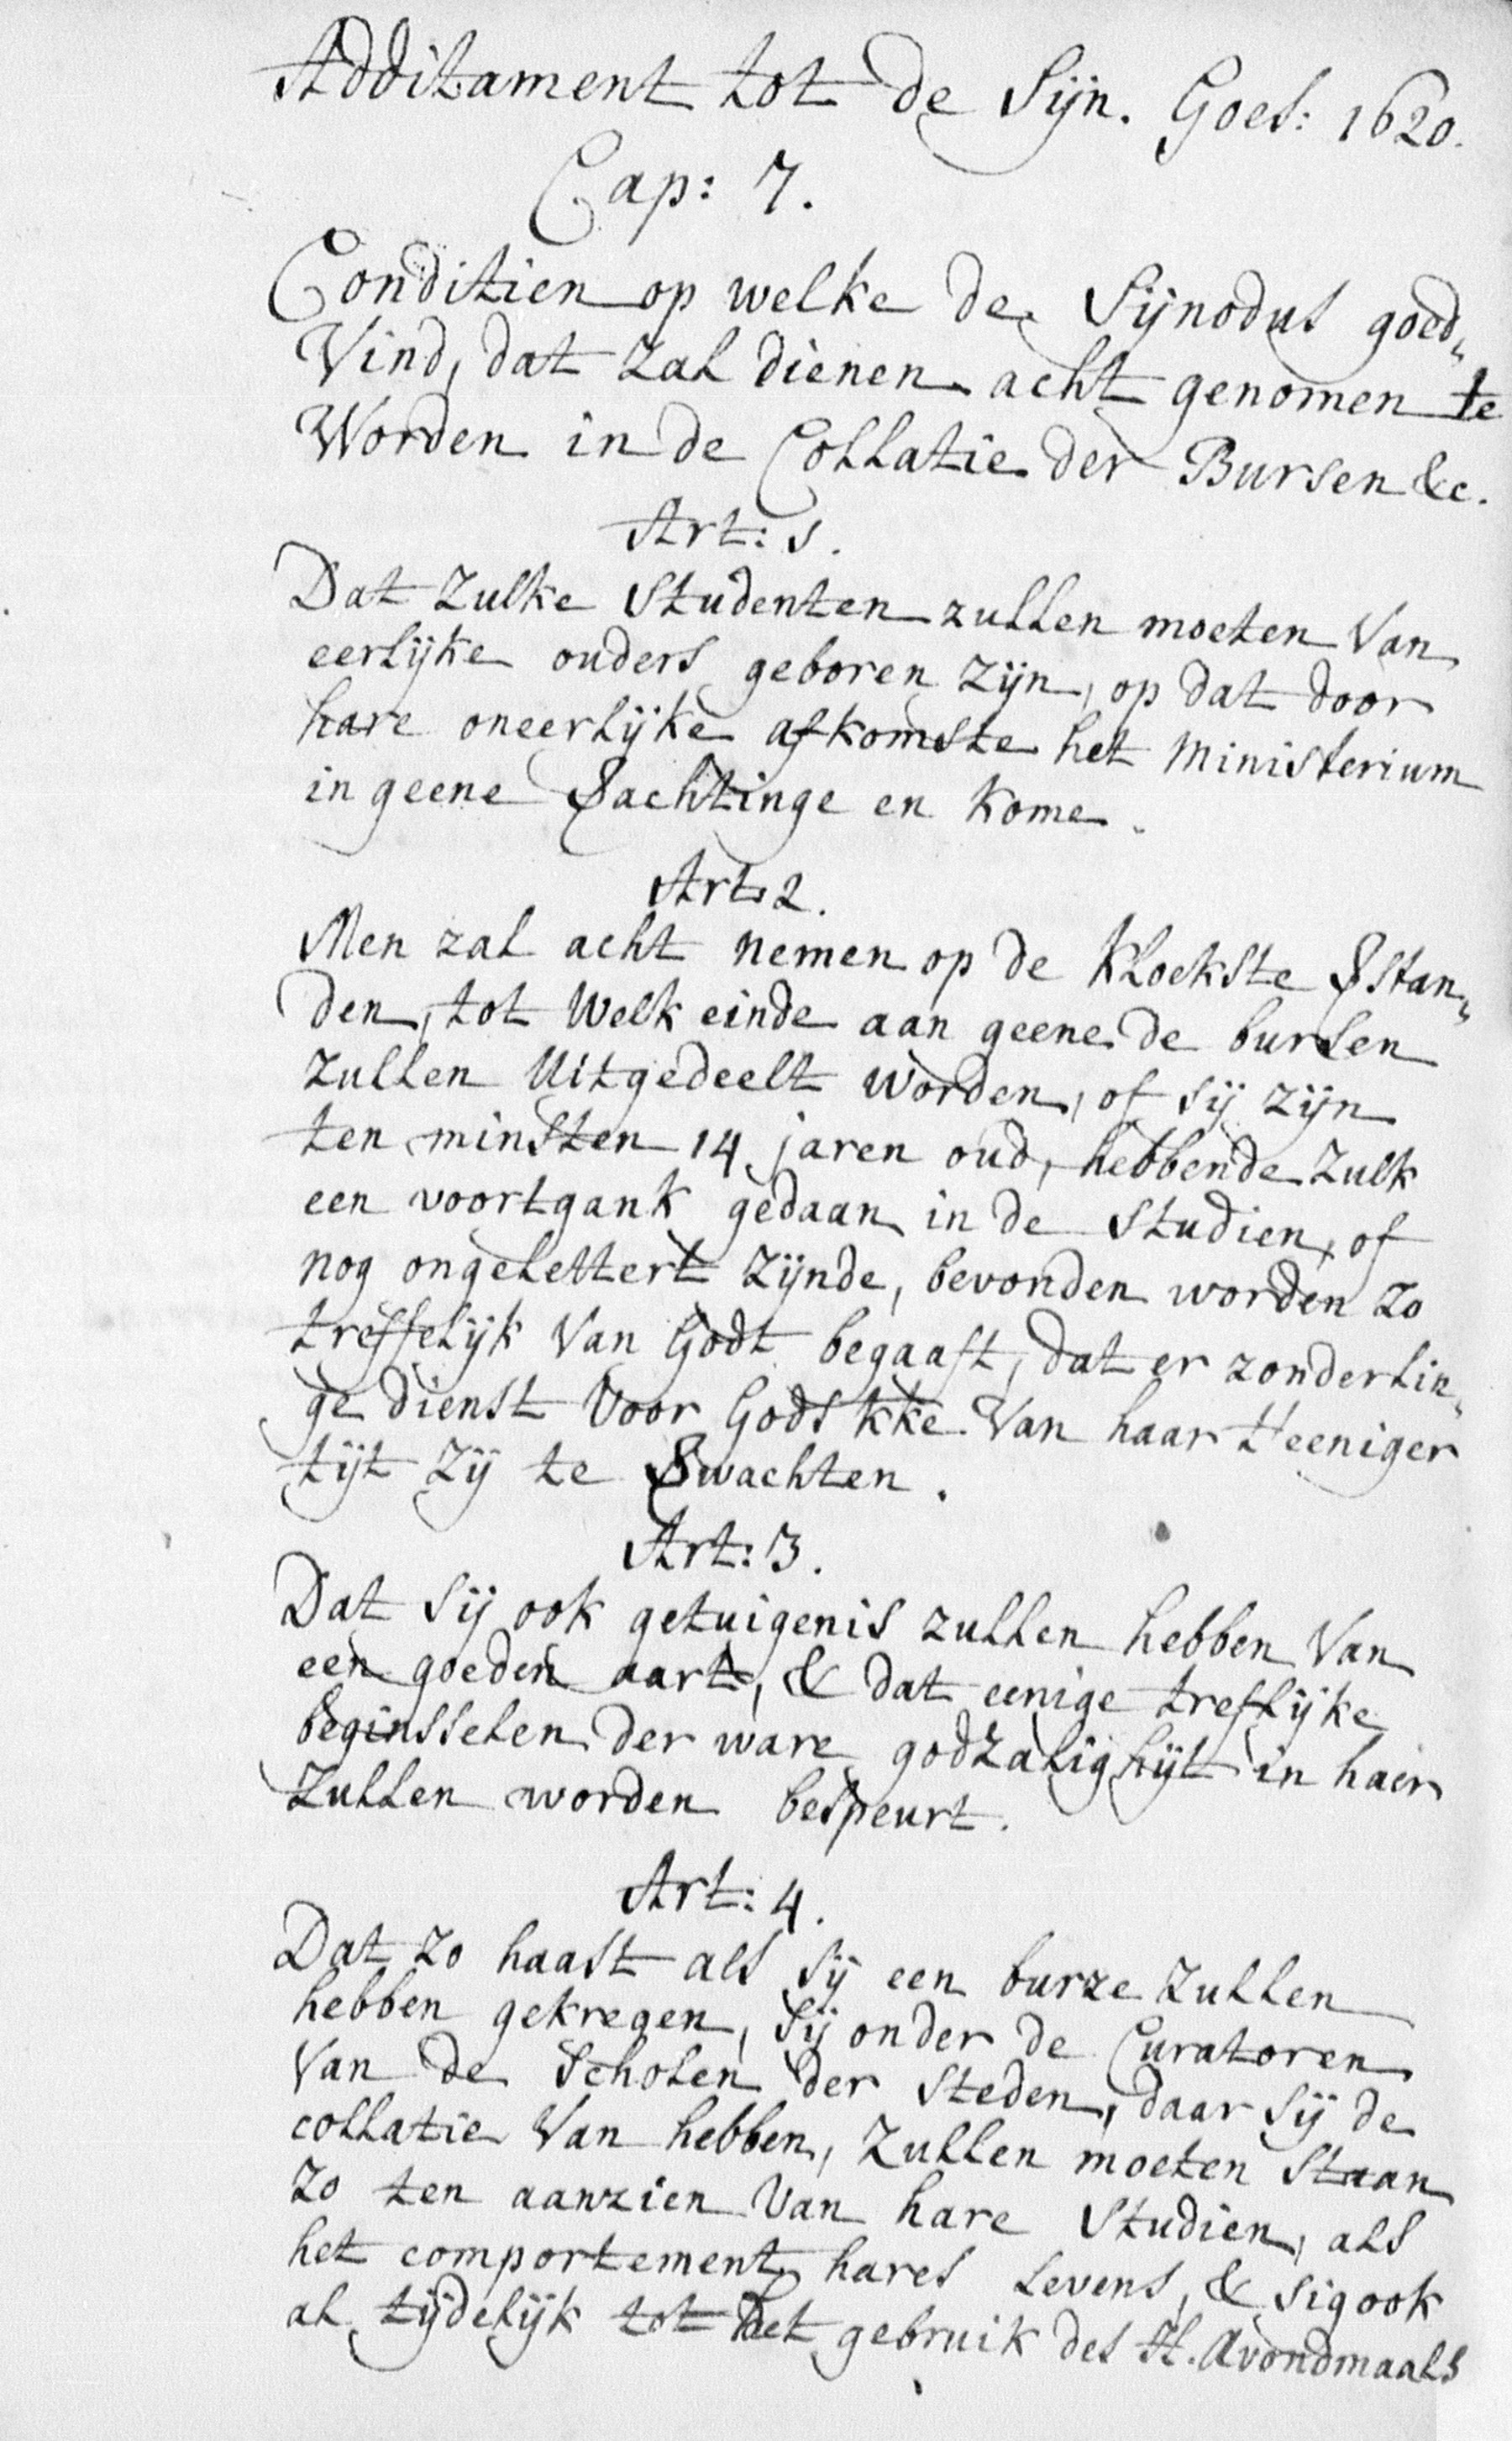 Additament tot de Sijn. Goes: 1620.
Cap: 7.
Conditien op welke de Sijnodus goed„
Vind, dat zal dienen acht genomen te
Worden in de Collatie der Bursen &c.
Art: 1.
Dat zulke Studenten zullen moeten Van
eerlijke ouders geboren zijn, op dat door
hare oneerlijke afkomste het Ministerium
in geene &achtinge en kome.
Art: 2.
Men zal acht nemen op de kloekste &stan„
den, tot welk einde aan geene de bursen
zullen Uitgedeelt worden, of sij zijn
ten minsten 14 jaren oud, hebbende zulk
een voortgank gedaan in de Studien, of
nog ongelettert zijnde, bevonden worden zo
treffelijk Van Godt begaaft, dat er zonderlin„
ge dienst Voor Gods kke. Van haar t'eeniger
tijt zij te &wachten.
Art: 3.
Dat sij ook getuigenis zullen hebben Van
een goeden aart, & dat eenige treflijke
beginsselen der ware godzalighijt in haer
zullen worden bespeurt.
Art: 4.
Dat zo haast als sij een burze zullen
hebben gekregen, sij onder de Curatoren
Van de Scholen der Steden, daar sij de
collatie Van hebben, zullen moeten Staan
zo ten aanzien Van hare Studien, als
het comportement hares levens, & sig ook
al tijdelijk tot het gebruik des H. Avondmaals